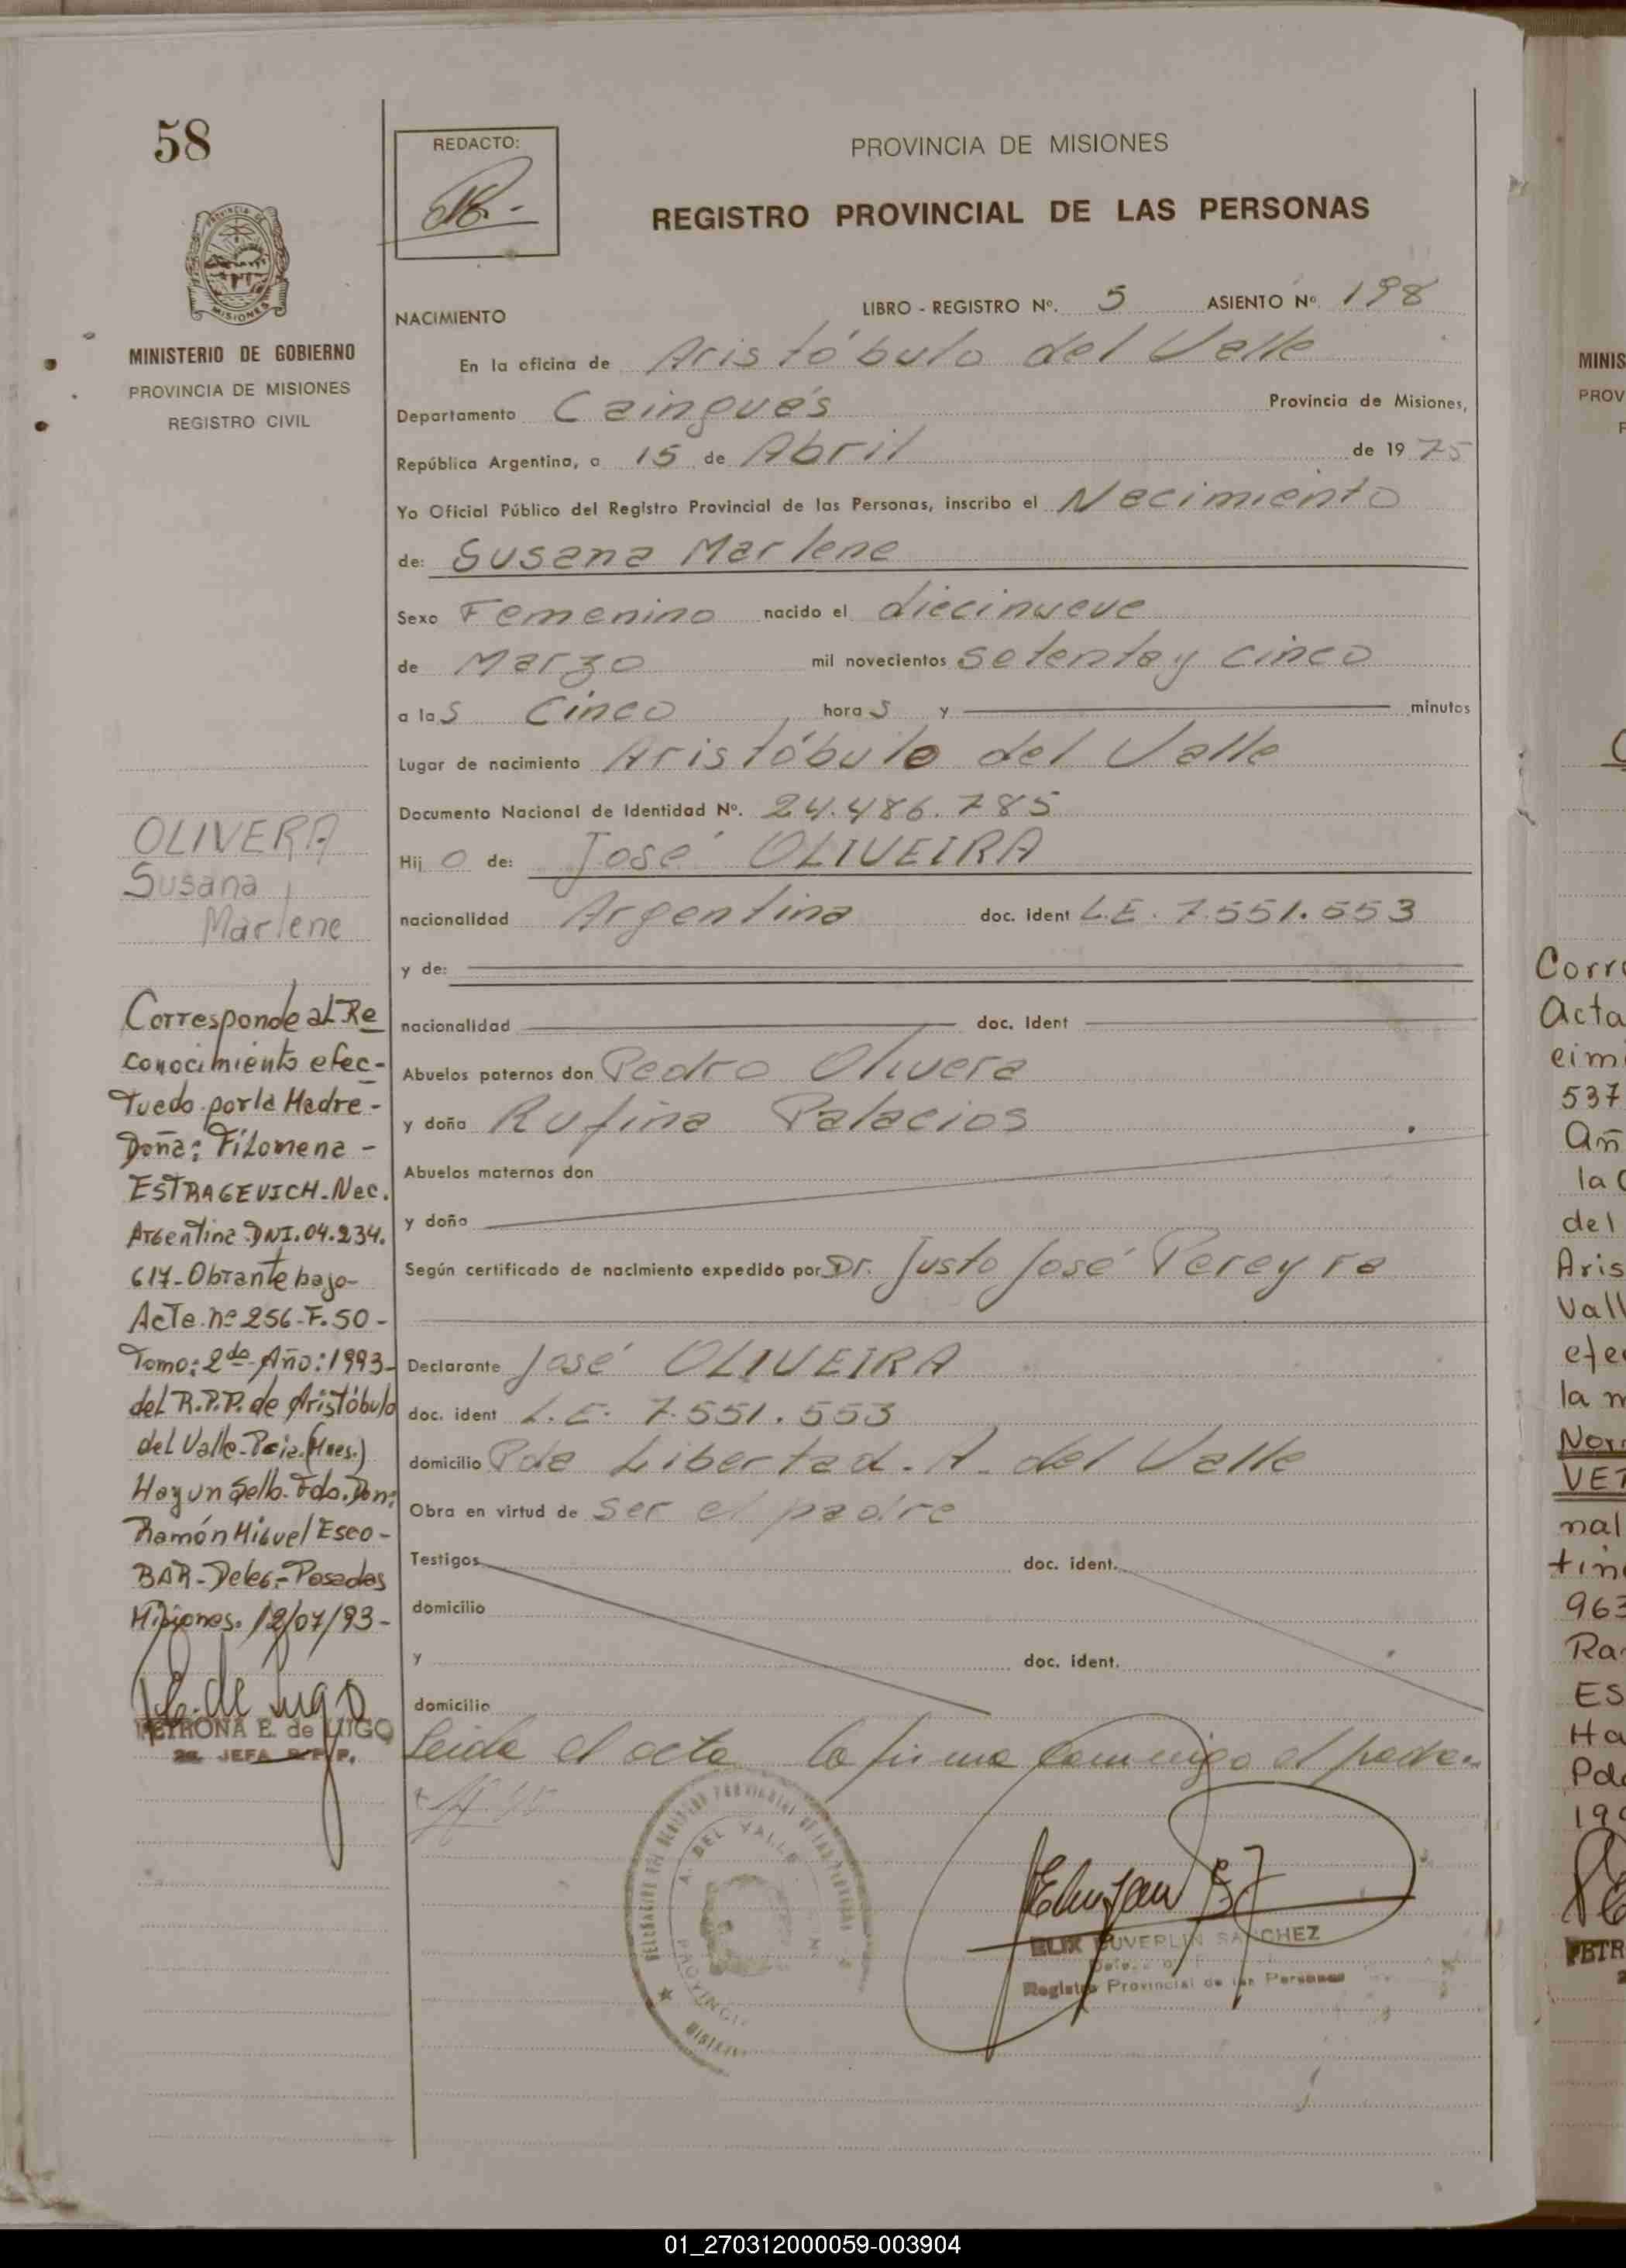 58
MINISTERIO DE GOBIERNO
PROVINCIA DE MISIONES
REGISTRO CIVIL
REDACTO:
PROVINCIA DE MISIONES
REGISTRO PROVINCIAL DE LAS PERSONAS
NACIMIENTO
LIBRO - REGISTRO Nº. 5 ASIENTO Nº. 198
En la oficina de Aristóbulo del Valle
Departamento Cainguás Provincia de Misiones,
República Argentina, a 15 de Abril de 1975
Yo Oficial Público del Registro Provincial de las Personas, inscribo el Nacimiento
de: Susana Marlene
Sexo Femenino nacido el diecinueve
de Marzo mil novecientos setenta y cinco
a las Cinco horas y minutos
Lugar de nacimiento Aristóbulo del Valle
Documento Nacional de Identidad Nº. 24.486.785
Hijo de: José OLIVEIRA
nacionalidad Argentina doc. ident L.E. 7.551.553
y de:
nacionalidad doc. ident
Abuelos paternos don Pedro Olivera
y doña Rufina Palacios
Abuelos maternos don
y doña
Según certificado de nacimiento expedido por Dr. Justo José Pereyra
Declarante José OLIVEIRA
doc. ident L.E. 7.551.553
domicilio Pda Libertad. A. del Valle
Obra en virtud de ser el padre
Testigos doc. ident.
domicilio
y doc. ident.
domicilio
Leida el acta la firma conmigo el padre.
SANCHEZ
Registro Provincial de las Personas
A. DEL VALLE
OLIVERA
Susana
Marlene
Corresponde al Re
conocimiento efec-
tuado por la Madre-
Doña: Filomena -
ESTRAGEVICH-Nac.
Argentina DNI.04.234.
617-Obrante bajo-
Acta nº 256-F.50-
Tomo: 2do-Año:1993-
del R.P.P. de Aristóbulo
del Valle-Pcia.(Mnes.)
Hay un Sello-Fdo.Don:
Ramón Miguel Esco-
BAR-Deleg-Posadas
Misiones. 12/07/93-
PETRONA E. de LUGO
2a. JEFA R.P.P.
MINIS
PROV
Corre
Acta
cimi
537
Añ
la
del
Aris
Vall
efe
la m
Nor
VE
nal
tin
963
Ra
ES
Ha
Pd
19
PETR
01_270312000059-003904